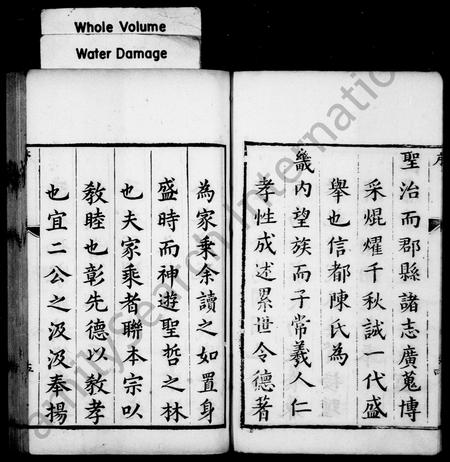 Whole Volume
Water Damage
聖治而郡縣諸志廣蒐博
采焜燿千秋誠一代盛
舉也信都陳氏為
畿內望族而子常羲人仁
孝性成述累世令德著
為家乘余讀之如置身
盛時而神遊聖哲之林
也夫家乘者聯本宗以
敎睦也彰先德以敎孝
也宜二公之汲汲奉揚